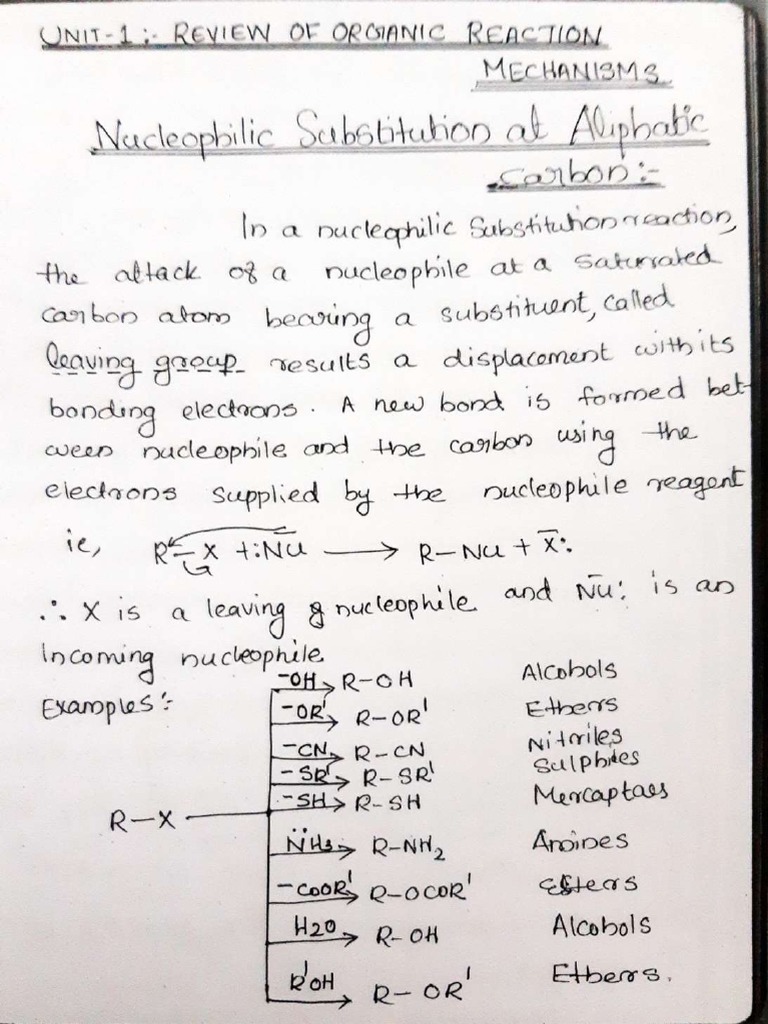 UNIT-1:- REVIEW OF ORGANIC REACTION
MECHANISMS
Nucleophilic Substitution at Aliphatic
carbon:-
In a nucleophilic Substitution reaction,
the attack of a nucleophile at a saturated
carbon atom bearing a substituent, called
leaving group results a displacement with its
bonding electrons. A new bond is formed bet-
ween nucleophile and the carbon using the
electrons supplied by the nucleophile reagent
ie, R-X + :N̄u ⟶ R-Nu + X̄:
∴ X is a leaving nucleophile and N̄u: is an
incoming nucleophile
Examples:-
⁻OH R-OH Alcohols
⁻OR' R-OR' Ethers
⁻CN R-CN Nitriles
⁻SR' R-SR' Sulphides
⁻SH R-SH Mercaptaes
R-X
N̈H3 R-NH2 Amines
⁻COOR' R-OCOR' Esters
H2O R-OH Alcohols
R'OH R-OR' Ethers.